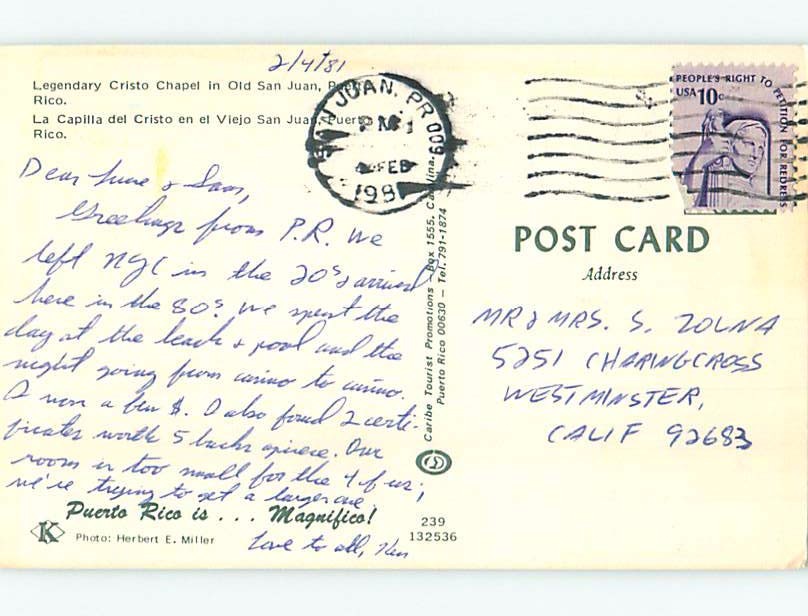 2/4/81
Legendary Cristo Chapel in Old San Juan, Puerto
Rico.
La Capilla del Cristo en el Viejo San Juan, Puerto
Rico.
SAN JUAN, PR 009
PM
FEB
198
PEOPLE'S RIGHT TO PETITION FOR REDRESS
USA 10c
Dear June & Sam,
Greetings from P.R. We
left NYC in the 20's & arrived
here in the 80's. We spent the
day at the beach & pool and the
night going from casino to casino.
I won a few $. I also found 2 certi-
ficates worth 5 bucks apiece. Our
room is too small for the 4 of us;
we're trying to get a larger one
Love to all, Ken
Puerto Rico is . . . Magnifico!
K
Photo: Herbert E. Miller
239
132536
Caribe Tourist Promotions — Box 1555, Carolina,
Puerto Rico 00630 — Tel. 791-1874
POST CARD
Address
MR & MRS. S. ZOLNA
5251 CHARINGCROSS
WESTMINSTER,
CALIF 92683